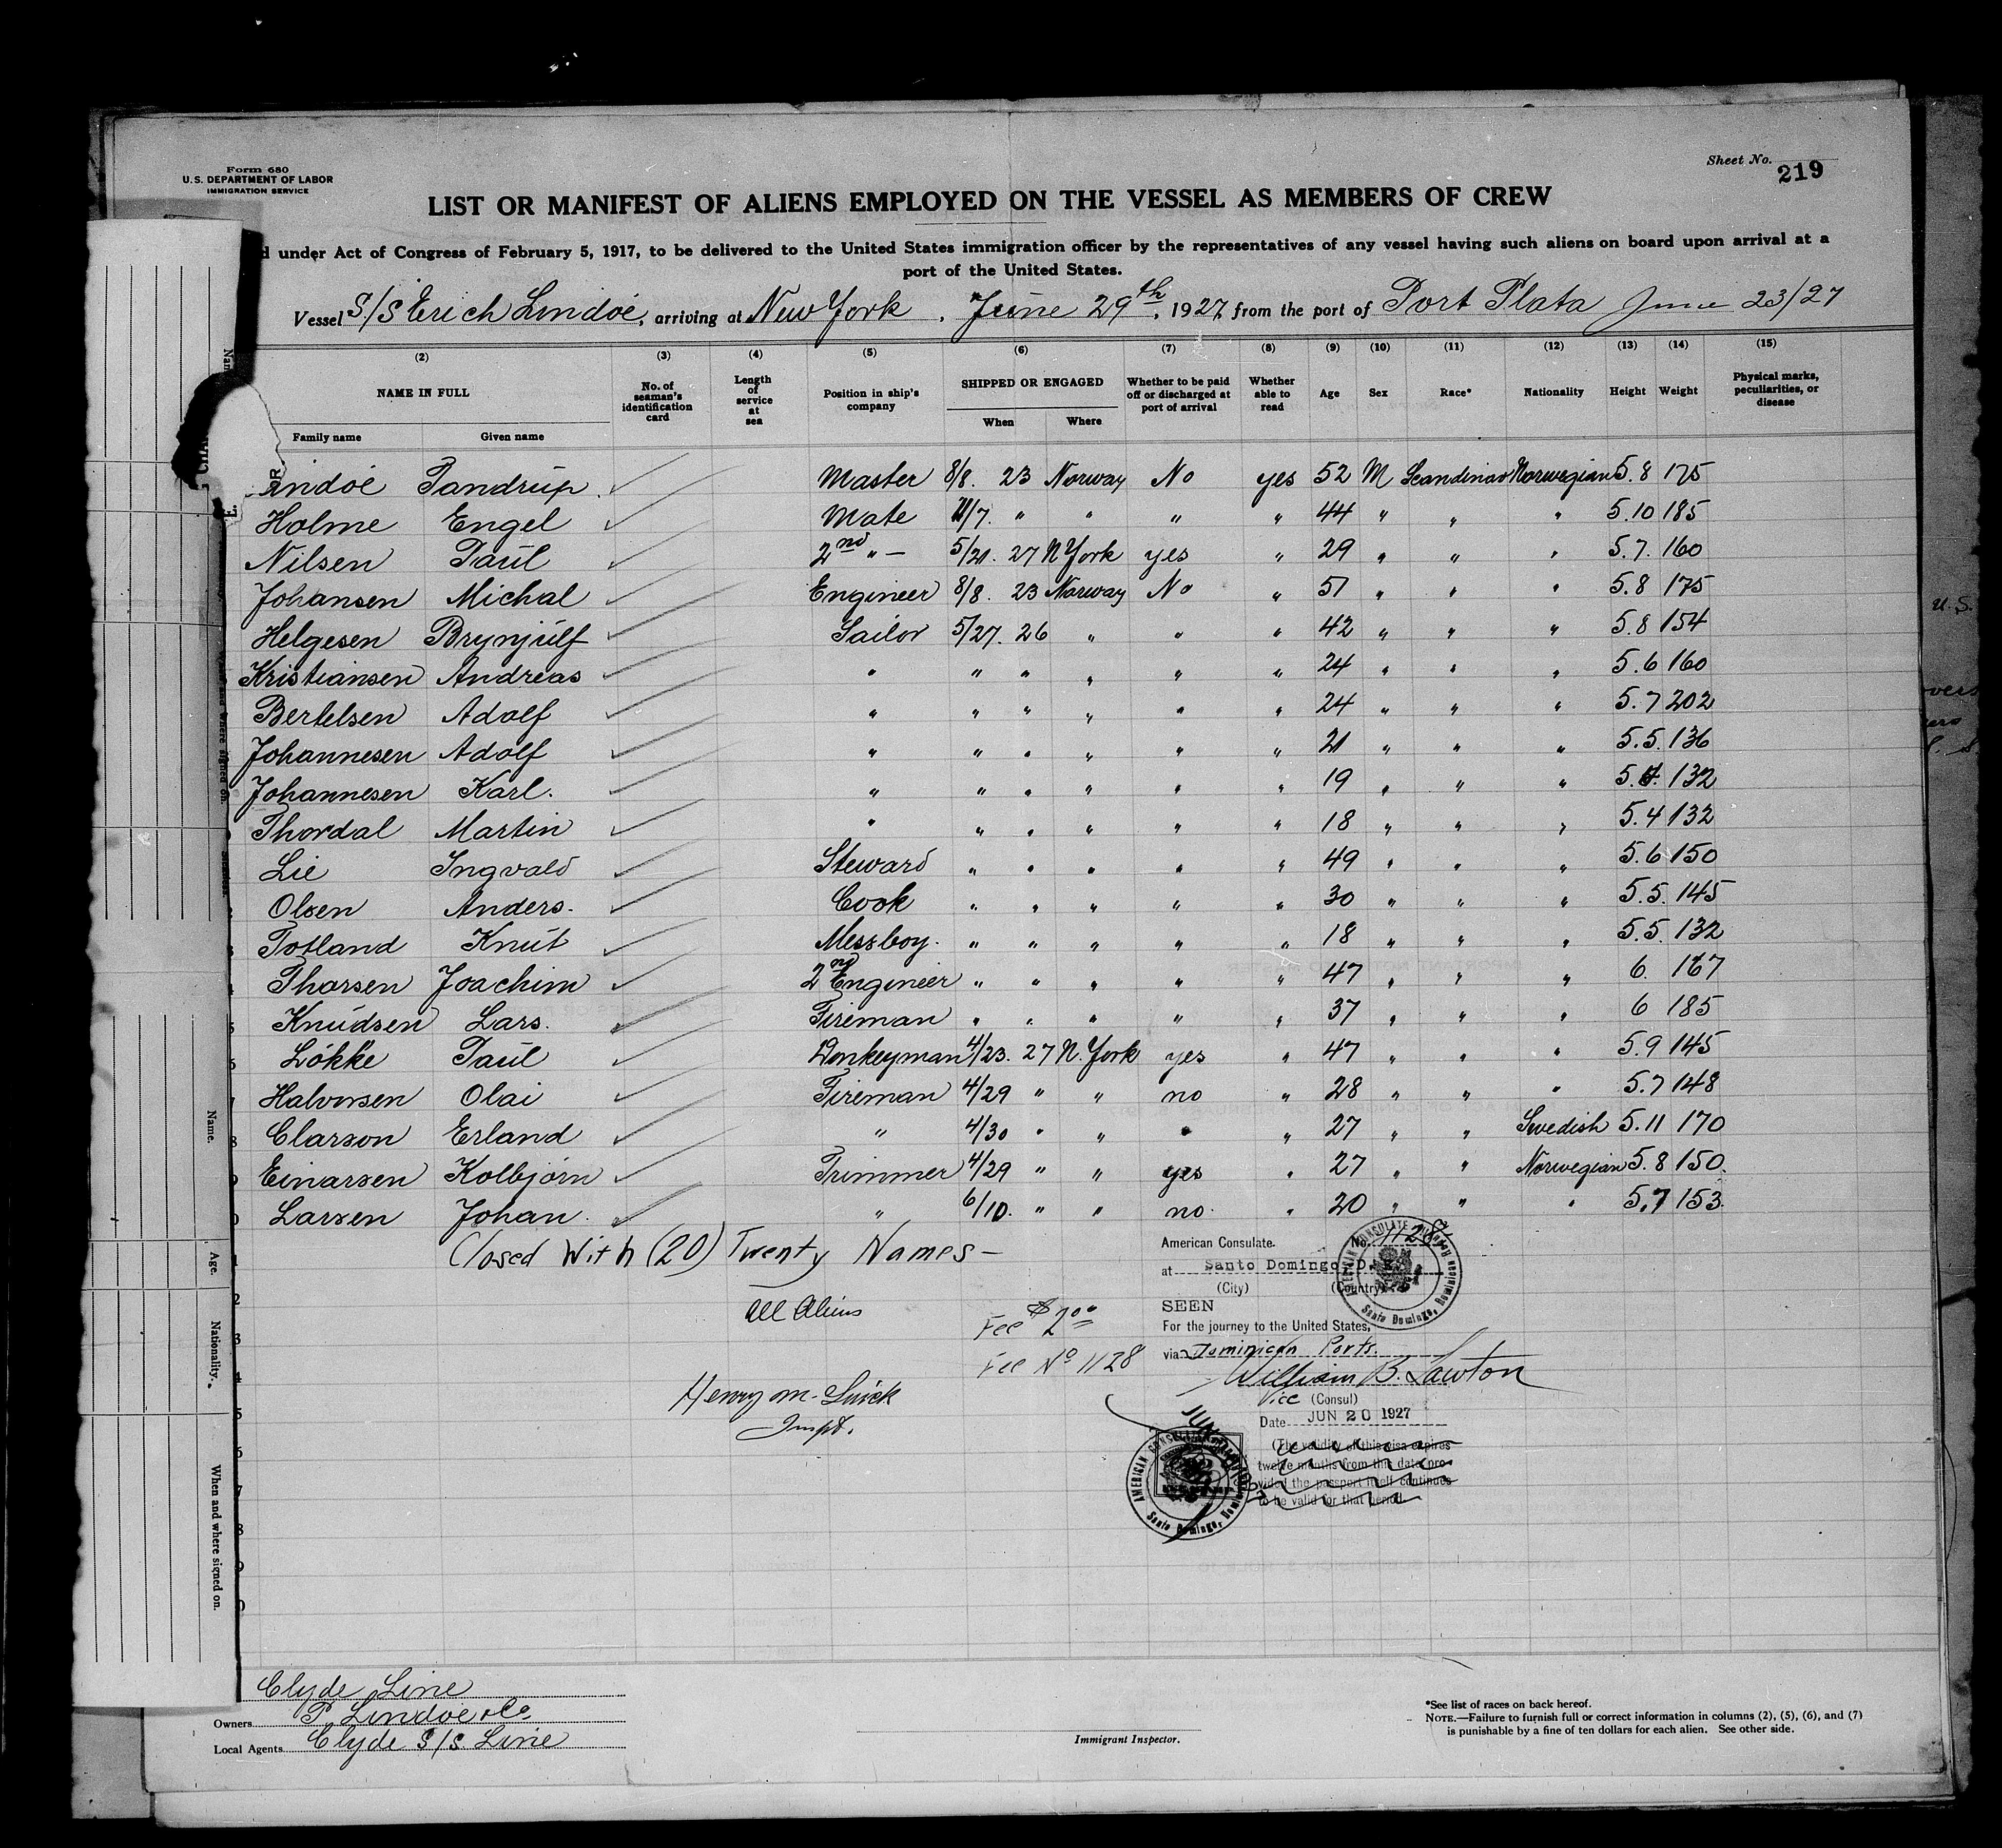 Form 680
U.S. DEPARTMENT OF LABOR
IMMIGRATION SERVICE
Sheet No.
219
LIST OR MANIFEST OF ALIENS EMPLOYED ON THE VESSEL AS MEMBERS OF CREW
under Act of Congress of February 5, 1917, to be delivered to the United States immigration officer by the representatives of any vessel having such aliens on board upon arrival at a
port of the United States.
Vessel S/S Erich Lindoé, arriving at New York, June 29th, 1927, from the port of Port Plata June 23/27
(2) (3) (4) (5) (6) (7) (8) (9) (10) (11) (12) (13) (14) (15)
NAME IN FULL No. of seaman's identification card Length of service at sea Position in ship's company SHIPPED OR ENGAGED Whether to be paid off or discharged at port of arrival Whether able to read Age Sex Race* Nationality Height Weight Physical marks, peculiarities, or disease
Family name Given name When Where
indoé Tandrup. ✓ Master 8/8. 23 Norway No yes 52 M Scandinav Norwegian 5.8 175
Holme Engel ✓ Mate 11/7. " " " " 44 " " " 5.10 185
Nilsen Paul ✓ 2nd " — 5/21. 27 N York yes " 29 " " " 5.7. 160
Johansen Michal ✓ Engineer 8/8. 23 Norway No " 51 " " " 5.8 175
Helgesen Brynjulf ✓ Sailor 5/27. 26 " " " 42 " " " 5.8 154
Kristiansen Andreas ✓ " " " " " " 24 " " " 5.6 160
Bertelsen Adolf ✓ " " " " " " 24 " " " 5.7 202
Johannesen Adolf ✓ " " " " " " 21 " " " 5.5. 136
Johannesen Karl. ✓ " " " " " " 19 " " " 5. 132
Thordal Martin ✓ " " " " " " 18 " " " 5.4 132
Lie Ingvald ✓ Steward " " " " " 49 " " " 5.6 150
Olsen Anders. ✓ Cook " " " " " 30 " " " 5.5. 145
Totland Knut ✓ Messboy. " " " " " 18 " " " 5.5. 132
Thorsen Joachim ✓ 2nd Engineer " " " " " 47 " " " 6. 167
Knudsen Lars. ✓ Fireman " " " " " 37 " " " 6 185
Lökke Paul ✓ Donkeyman 4/23. 27 N. York yes " 47 " " " 5.9 145
Halvorsen Olai ✓ Fireman 4/29 " " no " 28 " " " 5.7 148
Clarson Erland ✓ " 4/30 " " " " 27 " " Swedish 5.11 170
Einarsen Kolbjorn ✓ Trimmer 4/29 " " yes " 27 " " Norwegian 5.8 150.
Larsen Johan. ✓ " 6/10. " " no. " 20 " " " 5.7 153.
Closed With (20) Twenty Names —
All Aliens
Fee $2.00
Fee No 1128
Henry M.
Inspt.
American Consulate. No. 1128
at Santo Domingo, D. R.
(City) (Country)
SEEN
For the journey to the United States,
via Dominican Ports.
William B. Lawton
Vice (Consul)
Date JUN 20 1927
(The validity of this visa expires
twelve months from the date pro-
vided the passport itself continues
to be valid for that period.
AMERICAN CONSULATE
Santo Domingo, Dominican
AMERICAN CONSULATE
Santo Domingo,
Name.
Age.
Nationality.
When and where signed on.
Clyde Line
Owners P. Lindoe & Co
Local Agents Clyde S/S. Line
Immigrant Inspector.
*See list of races on back hereof.
NOTE.—Failure to furnish full or correct information in columns (2), (5), (6), and (7)
is punishable by a fine of ten dollars for each alien. See other side.
U.S.